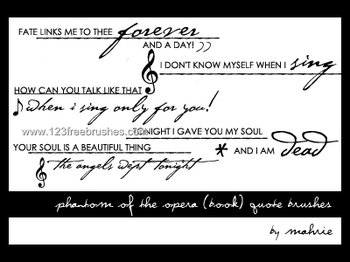 FATE LINKS ME TO THEE forever
AND A DAY!
I DON'T KNOW MYSELF WHEN I sing
HOW CAN YOU TALK LIKE THAT
when i sing only for you!
www.123freebrushes.com
TONIGHT I GAVE YOU MY SOUL
YOUR SOUL IS A BEAUTIFUL THING
* AND I AM dead
the angels wept tonight
phantom of the opera (book) quote brushes
by mahrie